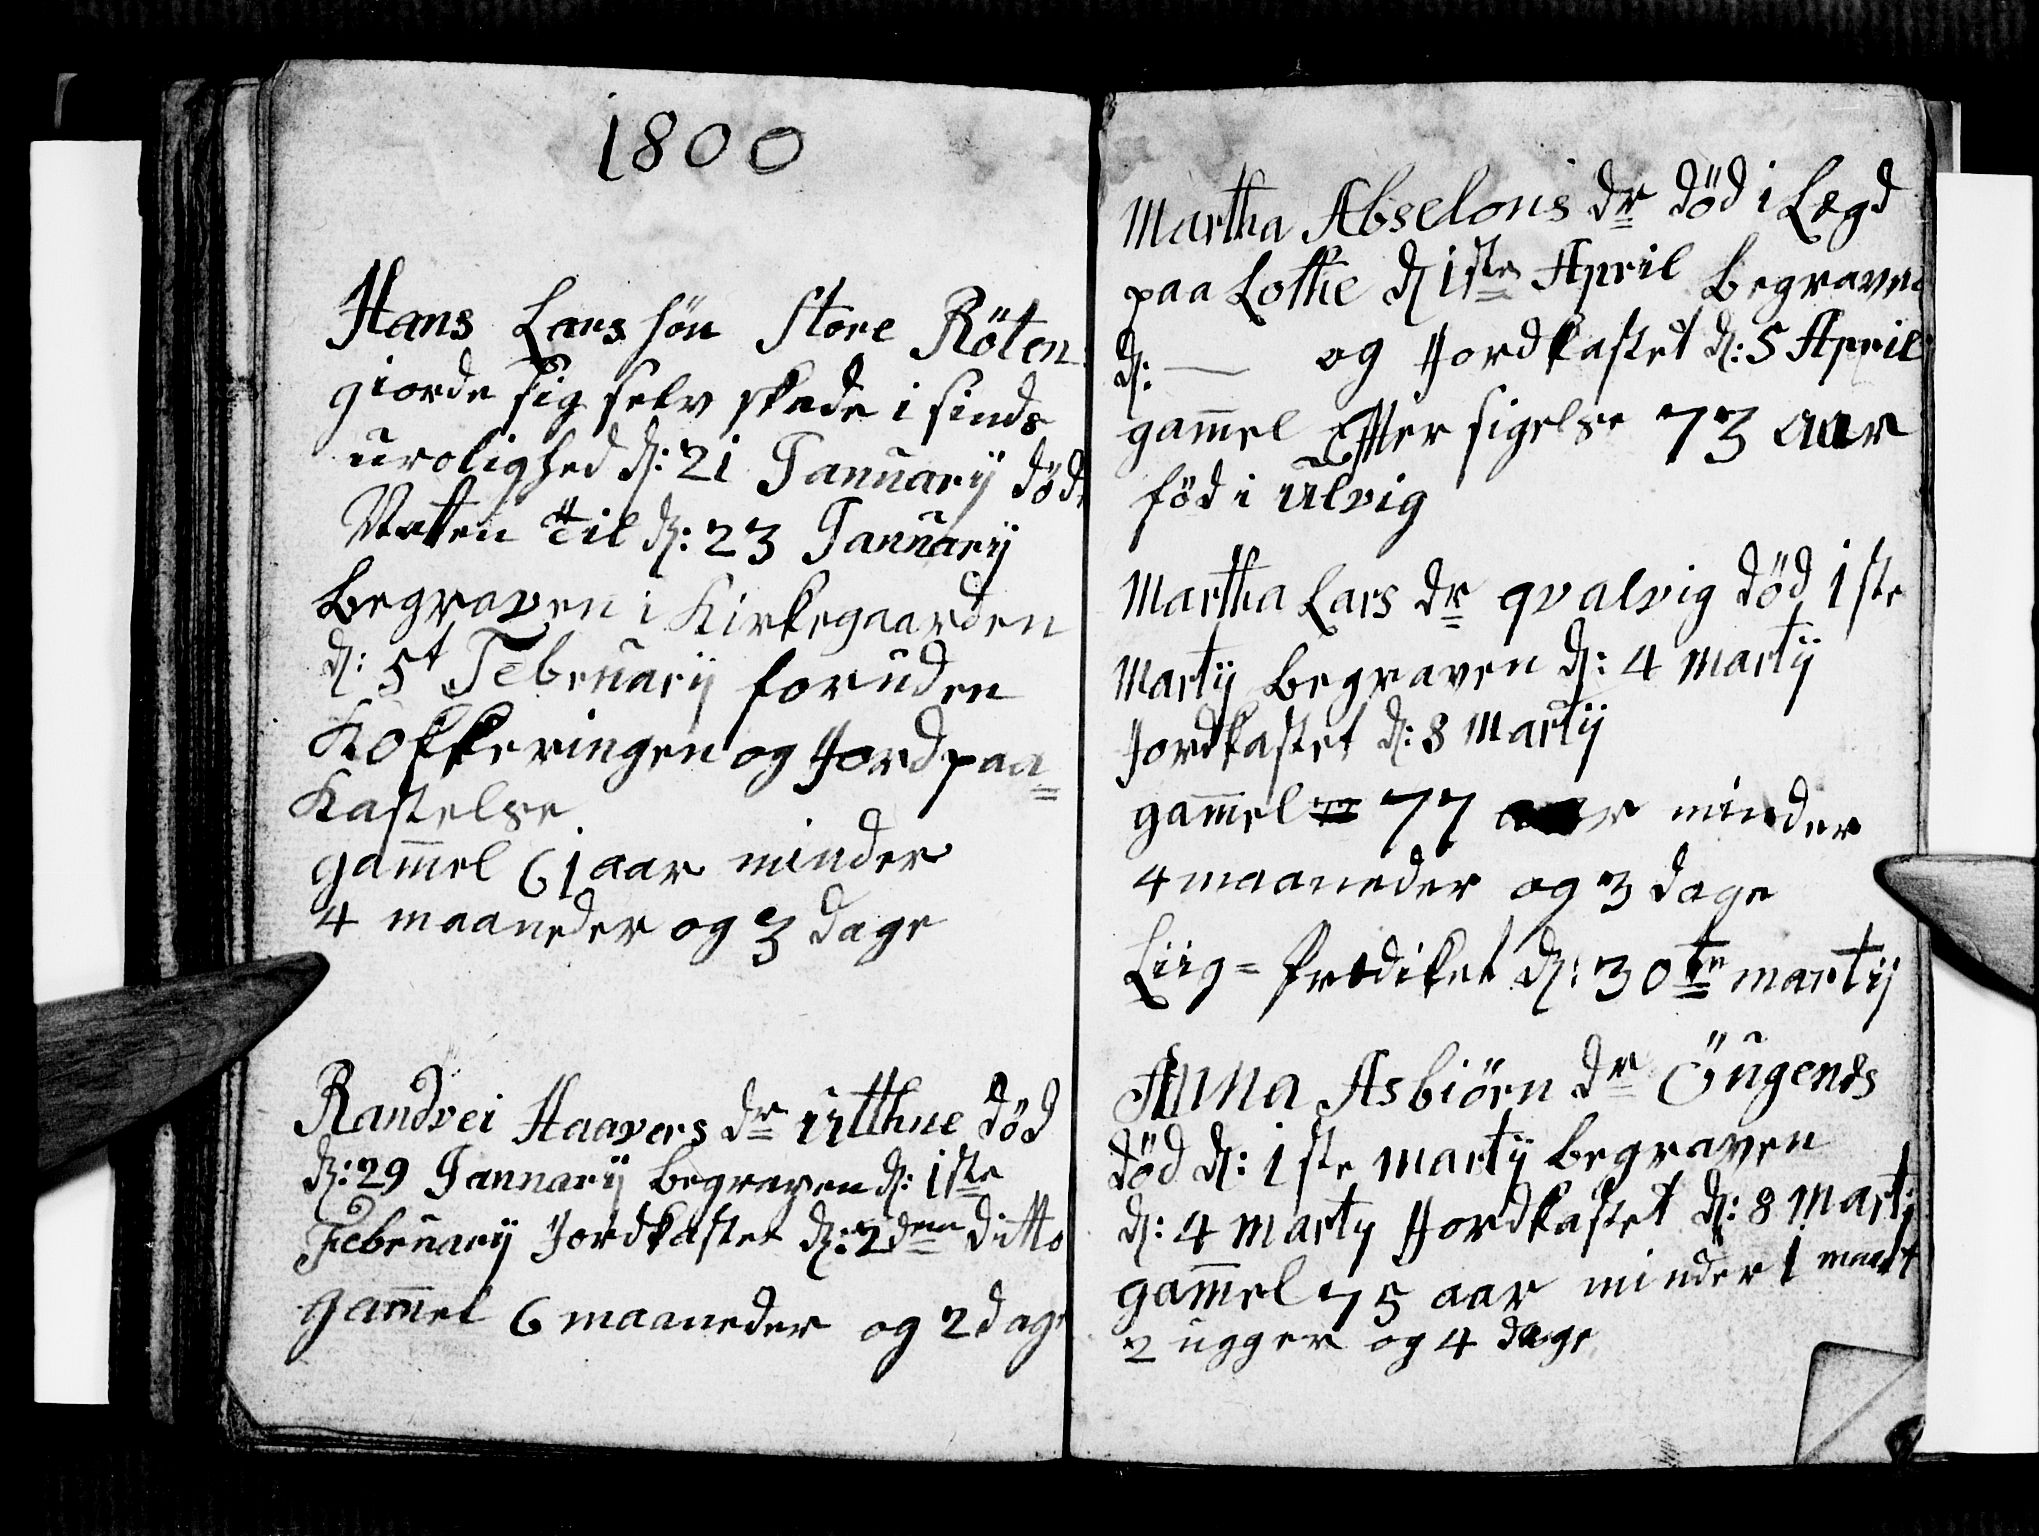 1800
Hans Lars søn Store Röten
giorde sig selv skade i sinds
urolighed d: 21 Januarÿ död
Natten til d: 23 Januarÿ
Begraven i Kirkegaarden
d: 5t Februarij foruden
Klokkeringen og Jord paa=
Kastelse
gam̄el 61 aar minder
4 maaneder og 3 dage
Randvei Haavers dr Utthne död
d: 29 Januarij begraven d: 1ste
Februarij Jordkastet d: 2den ditto
gam̄el 6 maaneder og 2 dage
Martha Abselons dr död i Lægd
paa Lothe d 1ste April Begraven
d: — og Jordkastet d: 5 April
gam̄el Efter sigelse 73 aar
föd i Ulvig
Martha Lars dr qvalvig död 1ste
Martij Begraven d: 4 Martÿ
Jordkastet d: 8 Martij
gam̄el 77 aar minder
4 maaneder og 3 dage
Liig= Prædiket d: 30te martij
Anna Asbiörn dr Öugends
död d: 1ste martÿ begraven
d: 4 Martij Jordkastet d: 8 Martij
gam̄el 75 aar minder 1 maa
2 ugger og 4 dage